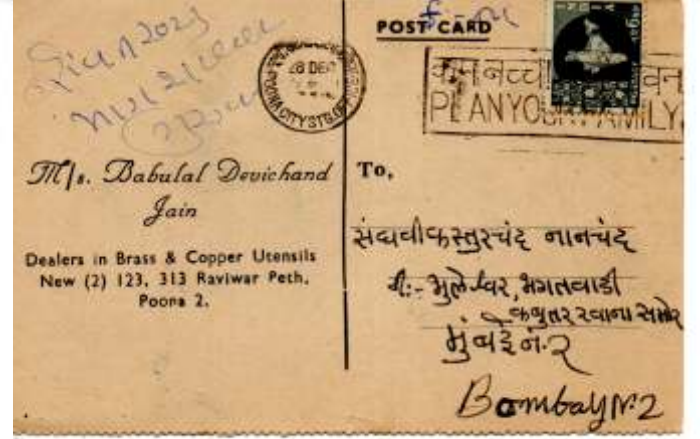 POST CARD
28 DEC
POONA CITY STG.
PLAN YOUR FAMILY
M/s. Babulal Devichand
Jain
Dealers in Brass & Copper Utensils
New (2) 123, 313 Raviwar Peth,
Poona 2.
To,
संघवी कस्तुरचंद नानचंद
मुलेश्वर, भगतवाडी
कबुतर खाना समोर
मुंबई नं. २
Bombay N. 2